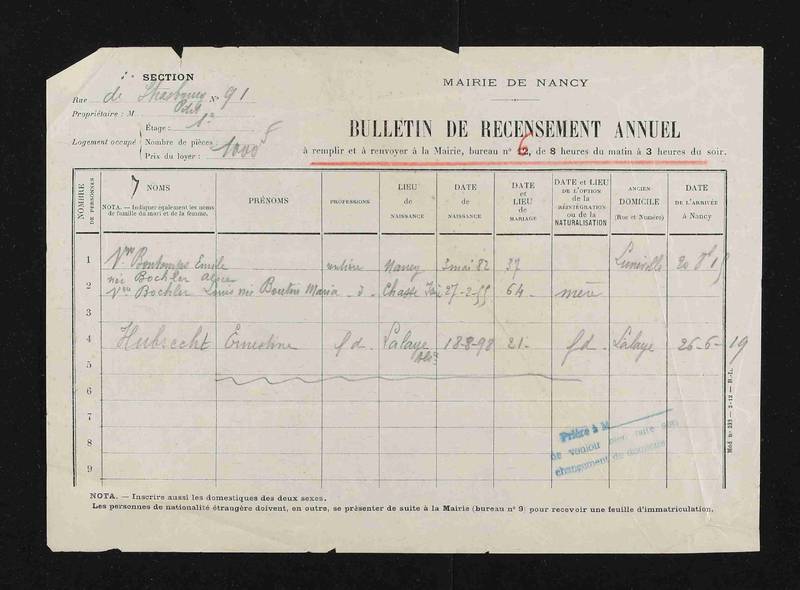 SECTION
Rue de Strasbourg N° 91
Propriétaire : M
Étage : 1er
Logement occupé
Nombre de pièces
Prix du loyer : 1000 F
MAIRIE DE NANCY
BULLETIN DE RECENSEMENT ANNUEL
à remplir et à renvoyer à la Mairie, bureau n° 6, de 8 heures du matin à 3 heures du soir.
NOMBRE DE PERSONNES
7 NOMS
NOTA. — Indiquer également les noms de famille du mari et de la femme.
PRÉNOMS
PROFESSIONS
LIEU de NAISSANCE
DATE de NAISSANCE
DATE et LIEU de MARIAGE
DATE et LIEU DE L'OPTION de la RÉINTÉGRATION ou de la NATURALISATION
ANCIEN DOMICILE (Rue et Numéro)
DATE DE L'ARRIVÉE à Nancy
1 Vve Bontemps Emile rentière Nancy 3 mai 82 37 Lunéville 20
née Bochler Alice
2 Vve Bochler Louis née Maria d. 27-2-55 64 mère
3
4 Hubrecht Ernestine f d. Lalaye 18-8-98 21 f d. Lalaye 26-6-19
5
6
7
8
9
Prière à M
de vouloir bien faire son
changement de domicile
Mod. n° 233 — 2-12 — B.-L.
NOTA. — Inscrire aussi les domestiques des deux sexes.
Les personnes de nationalité étrangère doivent, en outre, se présenter de suite à la Mairie (bureau n° 9) pour recevoir une feuille d'immatriculation.